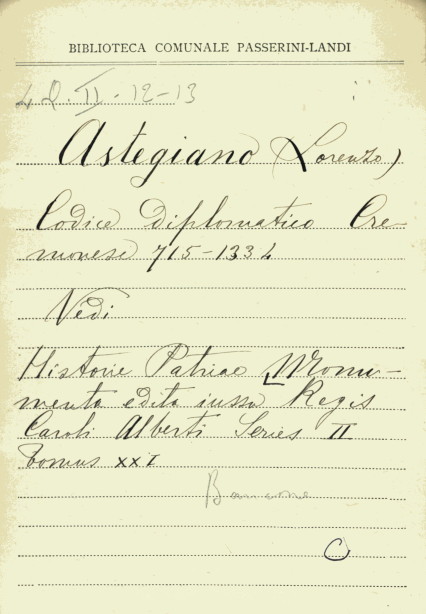 BIBLIOTECA COMUNALE PASSERINI-LANDI
42. II. 12-13
Astegiano (Lorenzo)
Codice diplomatico Cre-
monese 715-1334
Vedi
Historie Patriae Monu-
menta edita iussu Regis
Caroli Alberti Series II
Tomus XXI
C